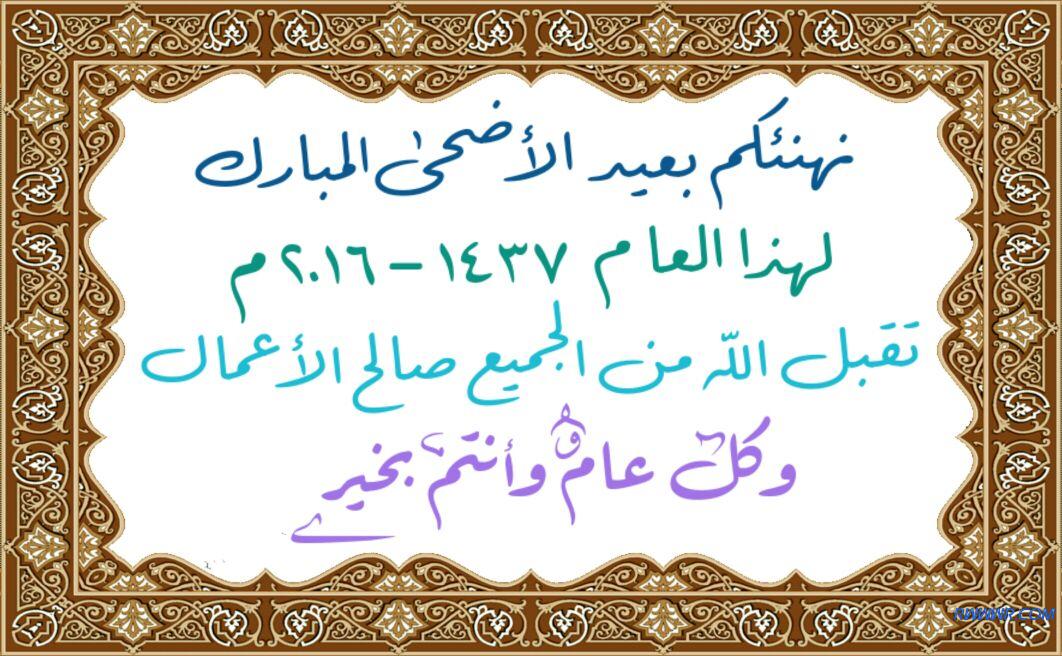 نهنئكم بعيد الأضحىٰ المبارك
لهذا العام ١٤٣٧ – ٢٠١٦ م
تقبل اللّه من الجميع صالح الأعمال
وكل عام وأنتم بخير